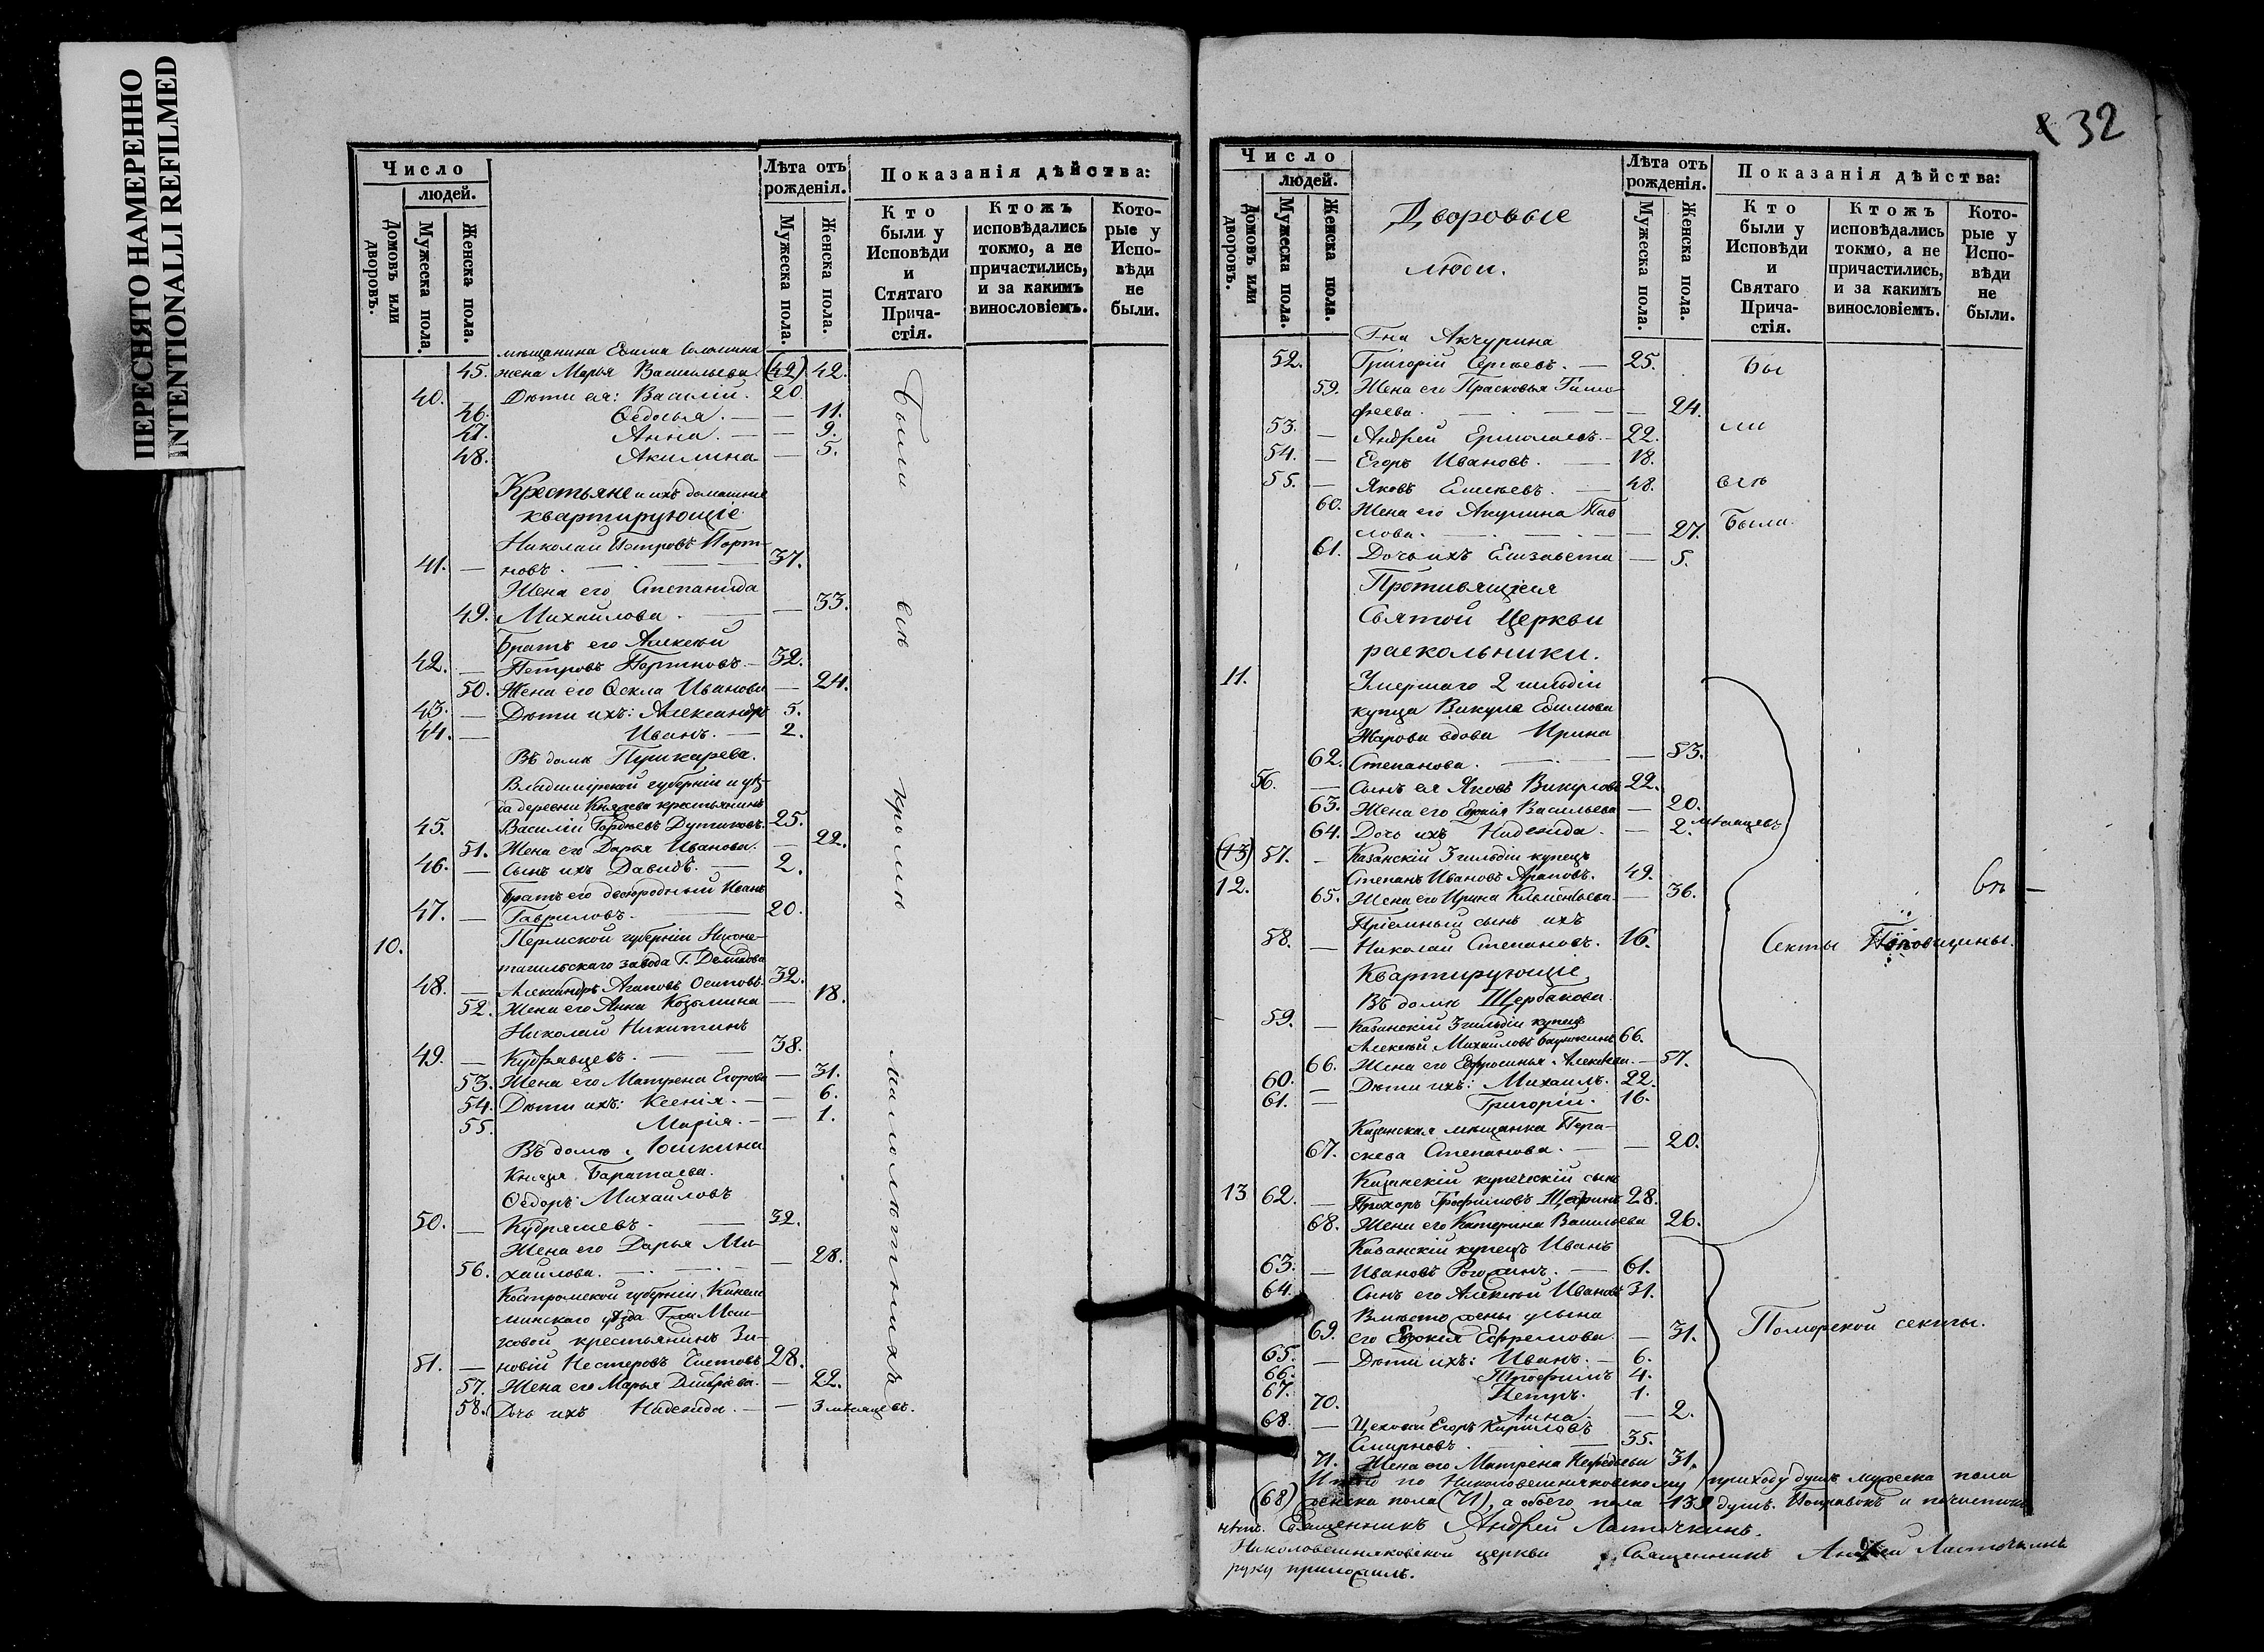 ПЕРЕСНЯТО НАМЕРЕННО
INTENTIONALLI REFILMED
Число
людей.
Домовъ или дворовъ.
Мужеска пола.
Женска пола.
Лѣта отъ рожденія.
Мужеска пола.
Женска пола.
Показанія дѣйства:
Кто были у Исповѣди и Стятаго Прича-стія.
Ктожъ исповѣдались токмо, а не причастились, и за какимъ винословіемъ.
Кото-рые у Испо-вѣди не были.
мѣщанина Ефима
45. жена Марья Васильева (42) 42.
40. Дѣти ея: Василій. 20.
46. Ѳедосья. — — 11.
47. Анна. — — 9.
48. Акилина — 5.
Крестьяне и ихъ домашніе
квартирующіе
Николай Петровъ Порт-
41. — новъ. 37.
Жена его Степанида
49. Михайлова. — 33.
Братъ его Алексѣй
42. — Петровъ Портновъ. — 32.
50. Жена его Ѳекла Иванова — 24.
43. — Дѣти ихъ: Александръ 5.
44. — Иванъ. — 2.
Въ домѣ Пушкарева.
Владимірской губерніи и уѣз-
да деревни Князева крестьянинъ
45. Василій Гордѣевъ Дутиковъ. 25.
51. Жена его Дарья Иванова. — 22.
46. — Сынъ ихъ Давидъ. — 2.
Братъ его двоюродный Иванъ
47. — Гавриловъ. 20.
10. Пермской губерніи Нижне-
тагильскаго завода Г. Демидова
48. — Александръ Агаповъ Осиповъ. 32.
52. Жена его Анна Козьмина — 18.
Николай Никитинъ
49. — Кудрявцевъ. — 38.
53. Жена его Матрена Егорова — 31.
54. Дѣти ихъ: Ксенія. — — 6.
55. Марія. — — 1.
Въ домѣ Юшкина
Князя Баратаева.
Ѳедоръ Михайловъ
50. — Кудряшевъ. — 32.
Жена его Дарья Ми-
56. хайлова. — 28.
Костромской губерніи, Кинеш-
минскаго уѣзда Гжи
ковой крестьянинъ Зи-
51. — новій Нестеровъ Чистовъ 28.
57. Жена его Марья Дмитріева. — 22.
58. Дочь ихъ Надежда. — — 3 мѣсяцевъ.
Были всѣ кромѣ малолѣтныхъ
32
Число
людей.
Домовъ или дворовъ.
Мужеска пола.
Женска пола.
Дворовые
люди.
Лѣта отъ рожденія.
Мужеска пола.
Женска пола.
Показанія дѣйства:
Кто были у Исповѣди и Святаго Прича-стія.
Ктожъ исповѣдались токмо, а не причастились, и за какимъ винословіемъ.
Кото-рые у Испо-вѣди не были.
Г-на Акчурина
52. Григорій Сергѣевъ. — 25. Бы
59. Жена его Прасковья Тимо-
феева. — 24.
53. — Андрей Ермолаевъ. — 22. ли
54. — Егоръ Ивановъ. — 18.
55. — Яковъ Елисѣевъ. — 48. всѣ
60. Жена его Акулина Пав
лова. — 27. Была.
61. Дочь ихъ Елизавета — 5.
Противящіеся
Святой Церкви
раскольники.
11. Умершаго 2 гильдіи
купца Викула Ефимова
Жарова вдова Ирина
62. Степанова. — 53.
56. — Сынъ ея Яковъ Викуловъ 22.
63. Жена его Евдокія Васильева — 20.
64. Дочь ихъ Надежда. — 2. мѣсяцевъ
(13) 57. — Казанскій 3 гильдіи купецъ
12. Степанъ Ивановъ Араповъ. 49.
65. Жена его Ирина Климентьева — 36.
Пріемный сынъ ихъ
58. — Николай Степановъ. 16.
Секты Поповщины.
Квартирующіе
Въ домѣ Щербакова.
59. — Казанскій 3 гильдіи купецъ
Алексѣй Михайловъ 66.
66. Жена его Евфросинья Алексѣева. — 57.
60. — Дѣти ихъ: Михаилъ. 22.
61. — Григорій. 16.
Казанская мѣщанка Пара-
67. скева Степанова. — 20.
Казанскій купеческій сынъ
13 62. — Прохоръ Трофимовъ 28.
68. Жена его Катерина Васильева 26.
Казанскій купецъ Иванъ
63. — Ивановъ Рогожинъ. — 61.
64. Сынъ его Алексѣй Ивановъ 31.
Вмѣсто жены у сына
69. его Евдокія Ефремова. — 31.
Поморской секты.
65. — Дѣти ихъ: Иванъ. — 6.
66. Трофимъ 4.
67. Петръ. 1.
70. Анна. — 2.
68. — Цеховой Егоръ Кириловъ
Смирновъ. 35.
71. Жена его Матрена 31.
Итого по приходу душъ мужеска пола
(68) женска пола (71), а обоего пола 139 душъ. Поправокъ и почистокъ
нѣтъ. Священникъ Андрей Ласточкинъ.
церкви Священникъ Андрей Ласточкинъ
руку приложилъ.